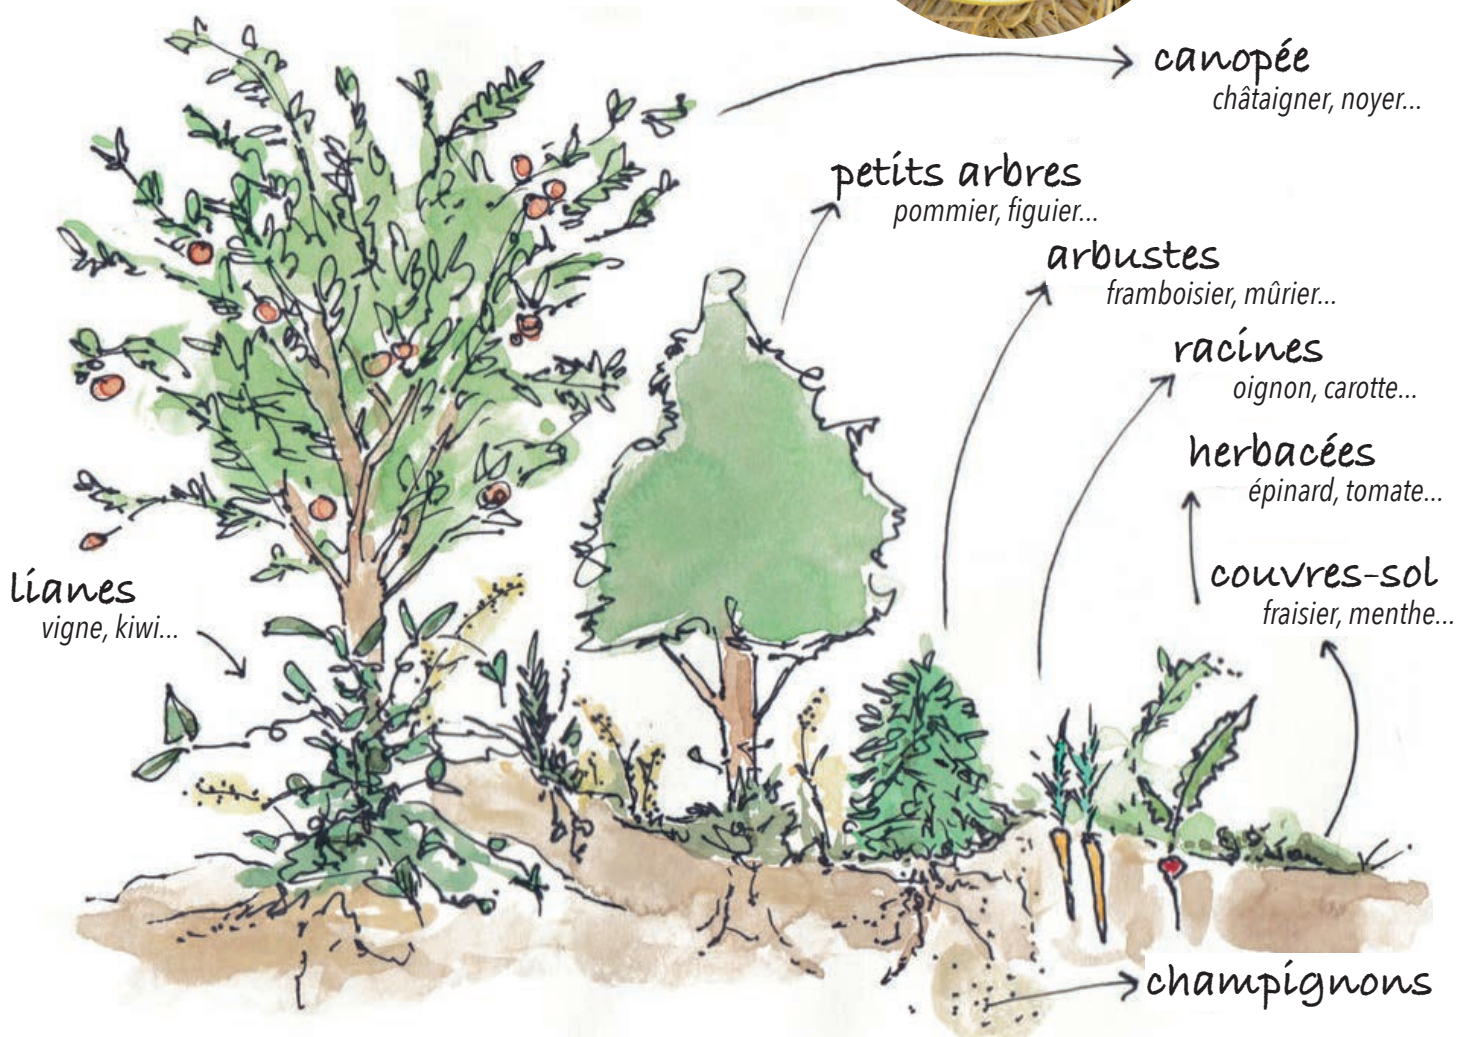 canopée
châtaigner, noyer...
petits arbres
pommier, figuier...
arbustes
framboisier, mûrier...
racines
oignon, carotte...
herbacées
épinard, tomate...
couvres-sol
fraisier, menthe...
lianes
vigne, kiwi...
champignons